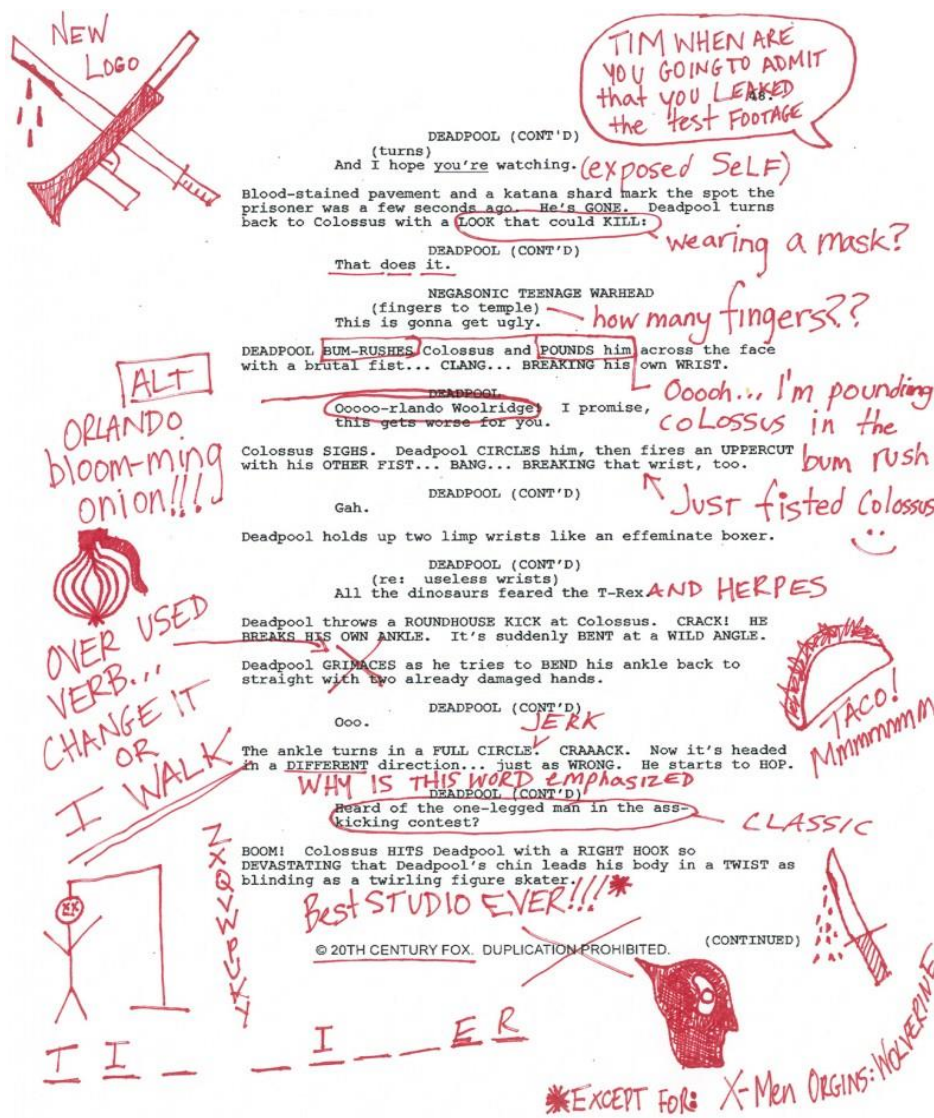 NEW
LOGO
TIM WHEN ARE
YOU GOING TO ADMIT
that YOU LEAKED
the test FOOTAGE
48.
DEADPOOL (CONT'D)
(turns)
And I hope you're watching. (exposed SELF)
Blood-stained pavement and a katana shard mark the spot the
prisoner was a few seconds ago. He's GONE. Deadpool turns
back to Colossus with a LOOK that could KILL:
wearing a mask?
DEADPOOL (CONT'D)
That does it.
NEGASONIC TEENAGE WARHEAD
(fingers to temple)
how many fingers??
This is gonna get ugly.
DEADPOOL BUM-RUSHES Colossus and POUNDS him across the face
with a brutal fist... CLANG... BREAKING his own WRIST.
ALT
ORLANDO
bloom-ming
onion!!!
DEADPOOL
Ooooo-rlando Woolridge! I promise,
this gets worse for you.
Ooooh... I'm pounding
COLOSSUS in the
bum rush
Colossus SIGHS. Deadpool CIRCLES him, then fires an UPPERCUT
with his OTHER FIST... BANG... BREAKING that wrist, too.
Just fisted Colossus
DEADPOOL (CONT'D)
Gah.
Deadpool holds up two limp wrists like an effeminate boxer.
DEADPOOL (CONT'D)
(re: useless wrists)
All the dinosaurs feared the T-Rex. AND HERPES
Deadpool throws a ROUNDHOUSE KICK at Colossus. CRACK! HE
BREAKS HIS OWN ANKLE. It's suddenly BENT at a WILD ANGLE.
OVER USED
VERB...
CHANGE IT
OR
I WALK
Deadpool GRIMACES as he tries to BEND his ankle back to
straight with two already damaged hands.
TACO!
Mmmmmmm
DEADPOOL (CONT'D)
Ooo.
JERK
The ankle turns in a FULL CIRCLE. CRAAACK. Now it's headed
in a DIFFERENT direction... just as WRONG. He starts to HOP.
WHY IS THIS WORD emphasized
DEADPOOL (CONT'D)
Heard of the one-legged man in the ass-
kicking contest?
CLASSIC
BOOM! Colossus HITS Deadpool with a RIGHT HOOK so
DEVASTATING that Deadpool's chin leads his body in a TWIST as
blinding as a twirling figure skater.
Best STUDIO EVER!!!*
© 20TH CENTURY FOX. DUPLICATION PROHIBITED.
(CONTINUED)
ZXQVWPUKY
T I _ _ _ I _ _ E R
*EXCEPT FOR: X-Men ORGINS: WOLVERINE